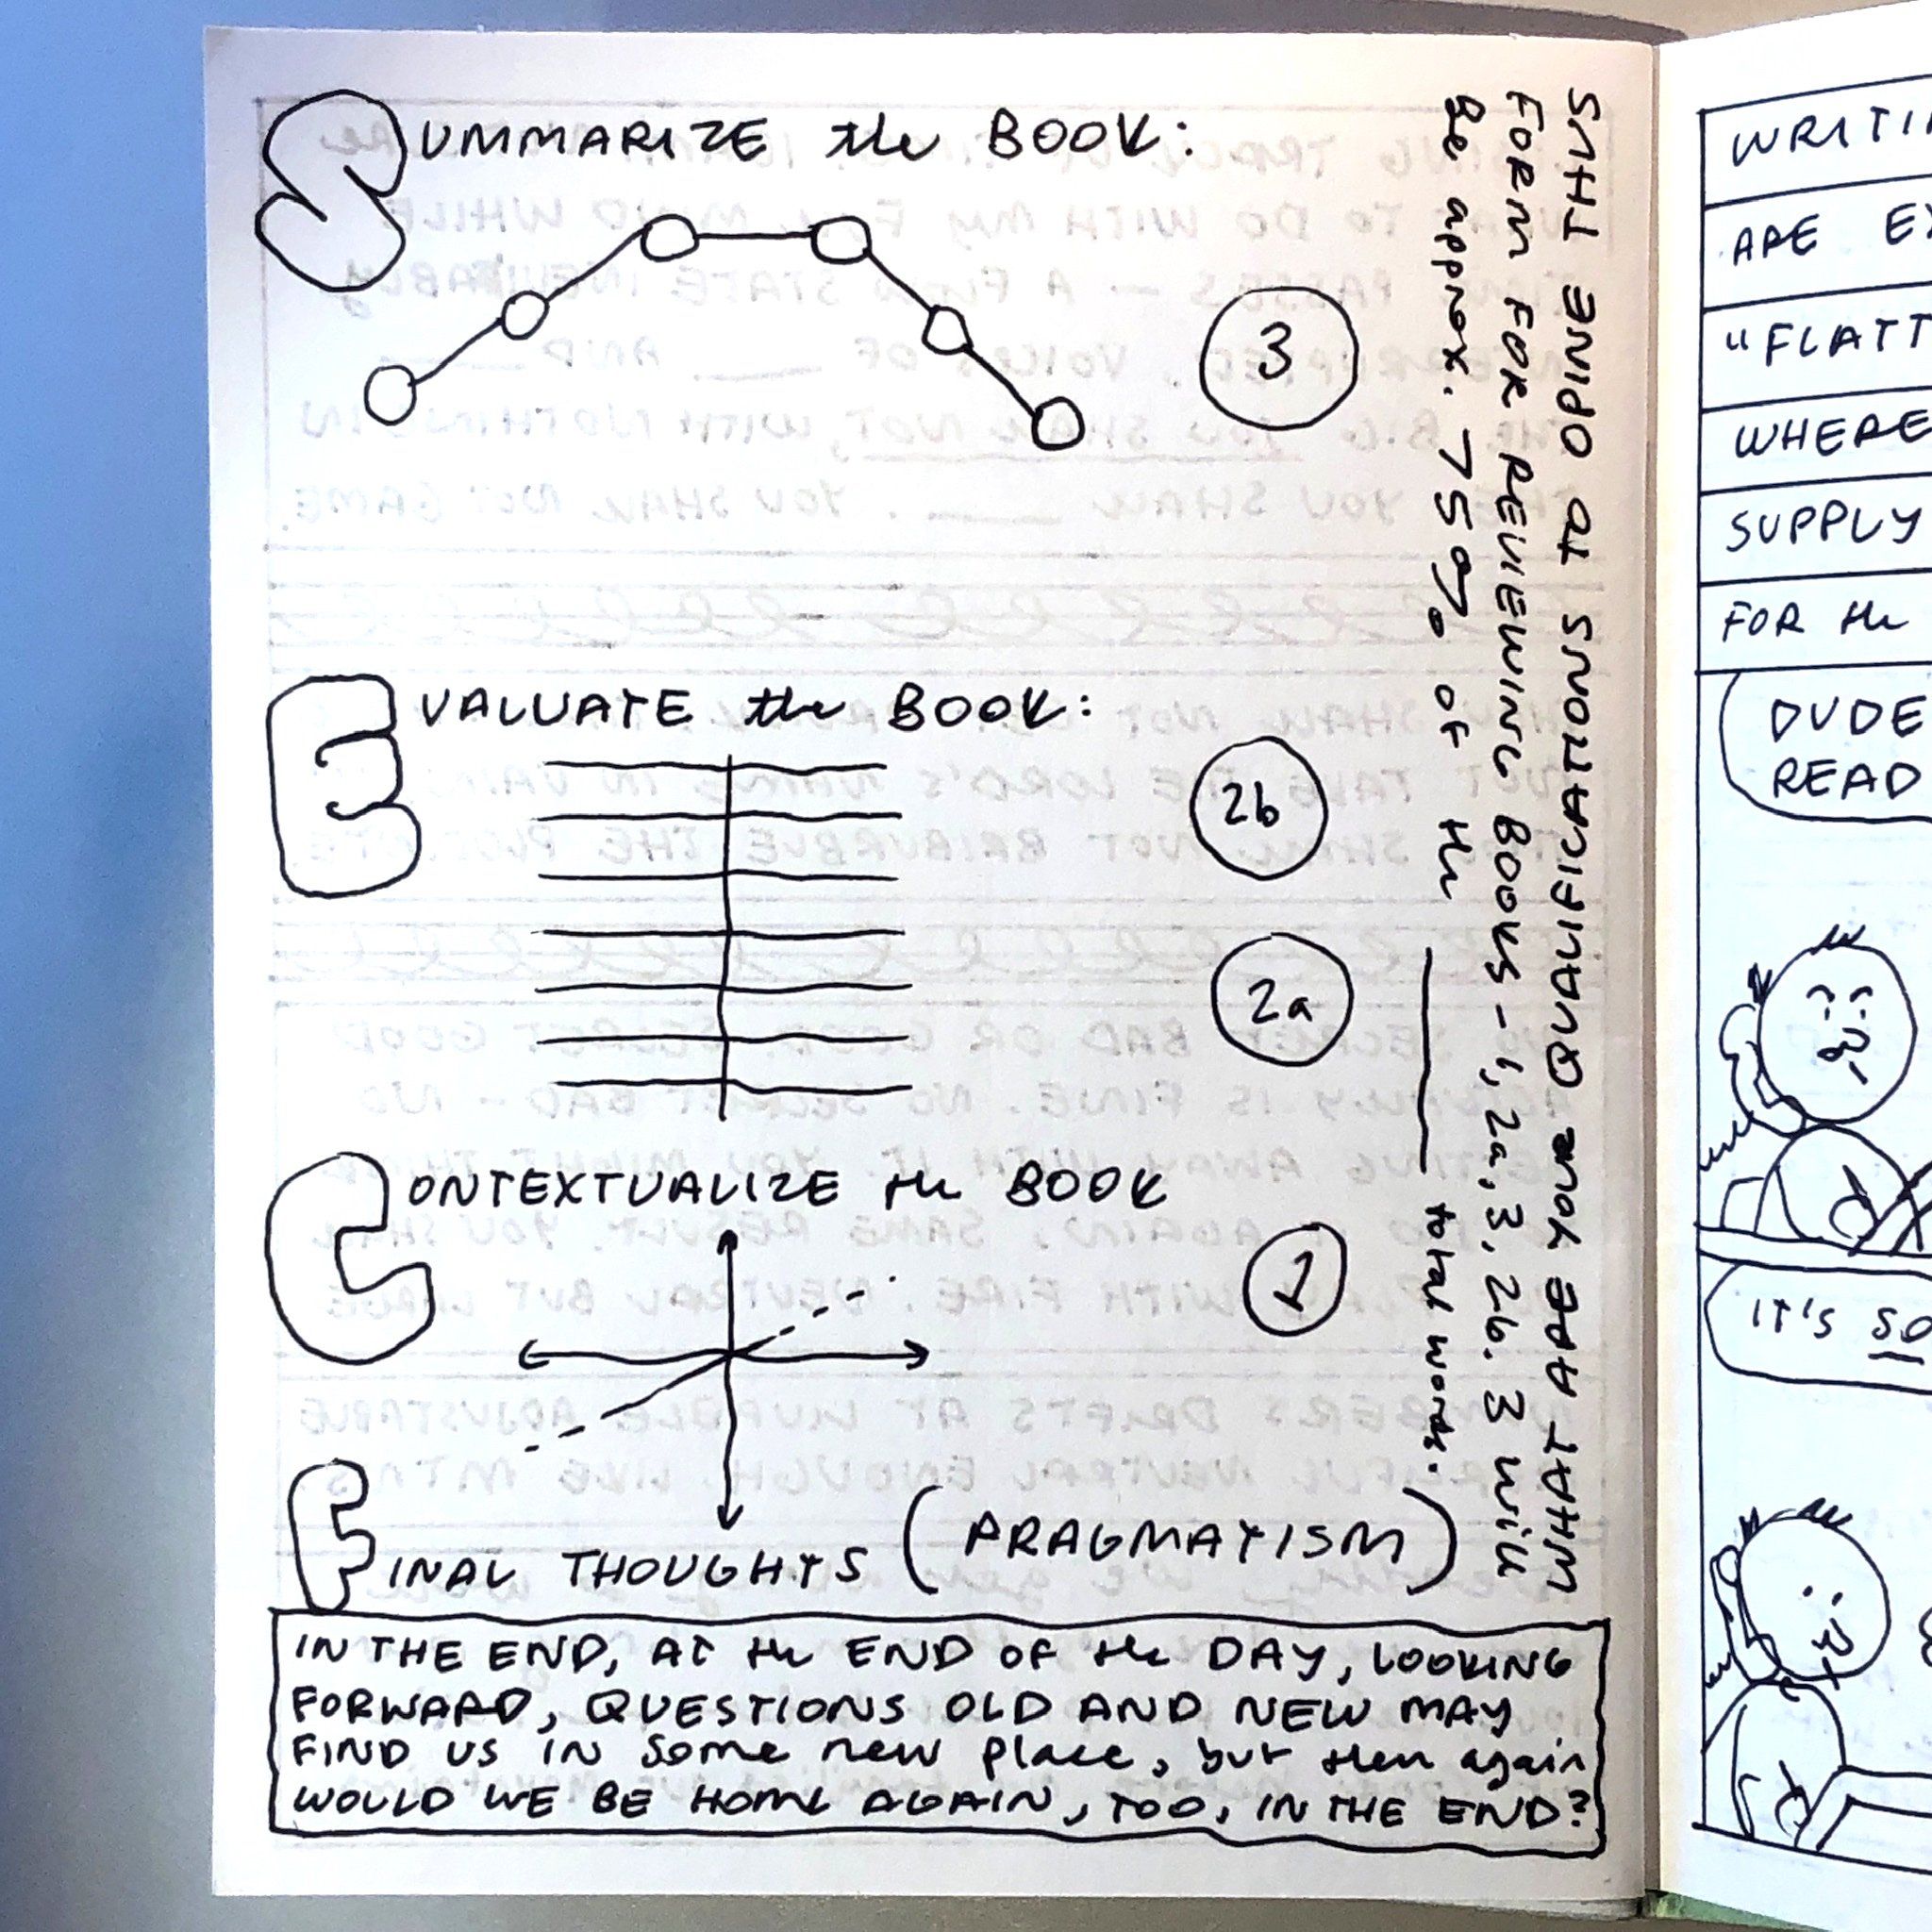 SUMMARIZE the BOOK:
3
EVALUATE the BOOK:
2b
2a
CONTEXTUALIZE the BOOK
1
FINAL THOUGHTS (PRAGMATISM)
IN THE END, AT the END OF the DAY, LOOKING
FORWARD, QUESTIONS OLD AND NEW MAY
FIND US IN some new place, but then again
WOULD WE BE HOME AGAIN, TOO, IN THE END?
WHAT ARE YOUR QUALIFICATIONS TO OPINE THUS
FORM FOR REVIEWING BOOKS - 1, 2a, 3, 2b. 3 will
Be approx. 75% of the ____ total words.
WRITI
ARE EX
"FLATT
WHERE
SUPPLY
FOR the
DUDE
READ
IT'S SO